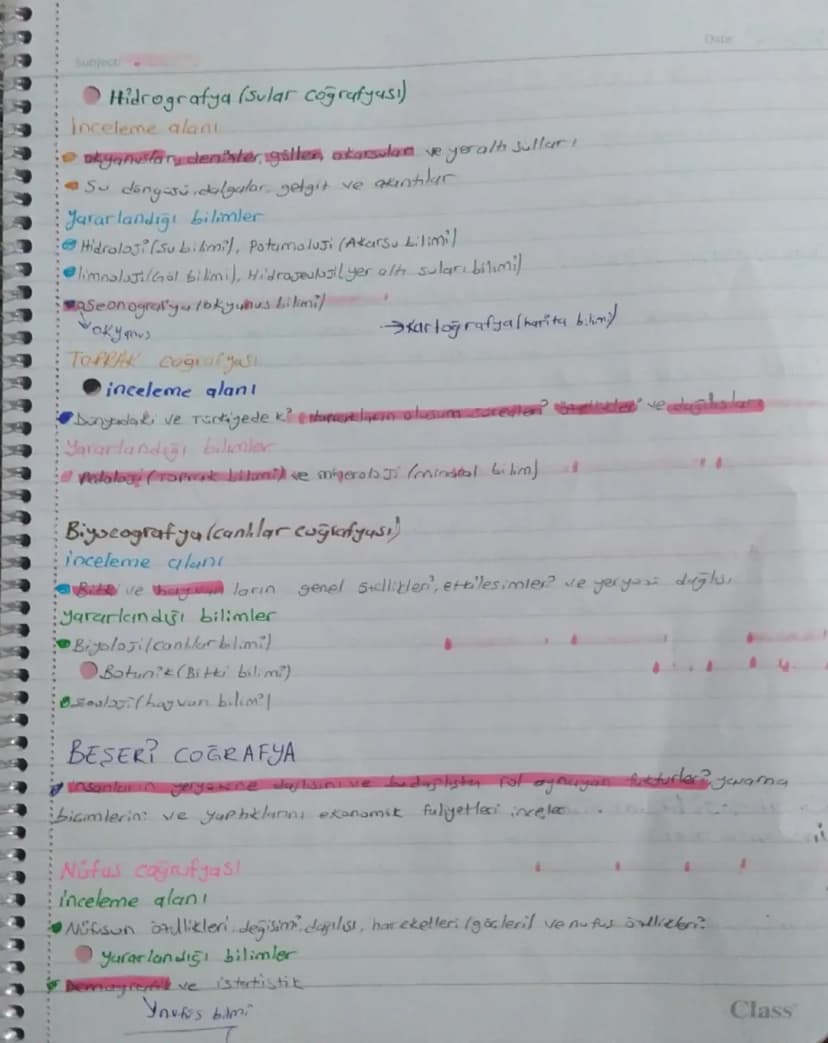 Date
Subject:
Hidrografya (Sular coğrafyası)
İnceleme alanı
okyanuslar, denizler, göller, akarsular ve yeraltı sulları
Su döngüsü, dalgalar, gelgit ve akıntılar
Yararlandığı bilimler
Hidroloji (su bilimi), Potamoloji (Akarsu bilimi)
limnoloji (Göl bilimi), Hidrojeoloji (yer altı suları bilimi)
oseonografya (okyunus bilimi)
okyanus →kartoğrafya (harita bilimi)
TOPRAK coğrafyası
inceleme alanı
Dünyadaki ve Türkiyedeki toprakların oluşum süreçleri özellikleri ve dağılışları
Yararlandığı bilimler
Pedoloji (Toprak bilimi) ve mineroloji (mineral bilim)
Biyocografya (canlılar coğrafyası)
inceleme alanı
Bitki ve hayvan ların genel özellikleri, etkileşimleri ve yeryüzü dağılışı
yararlandığı bilimler
Biyoloji (canlılar bilimi)
Botanik (Bitki bilimi)
zooloji (hayvan bilimi)
BEŞERİ COĞRAFYA
insanların yeryüzüne dağılışını ve bu dağılışta rol oynayan faktörleri yaşama
biçimlerini ve yaptıklarını ekonomik faliyetleri inceler
Nüfus coğrafyası
inceleme alanı
Nüfusun özellikleri, değişimi, dağılışı, hareketleri (göçleri) ve nufus özellikleri
yararlandığı bilimler
Demografi ve istatistik
nufus bilmi
Class